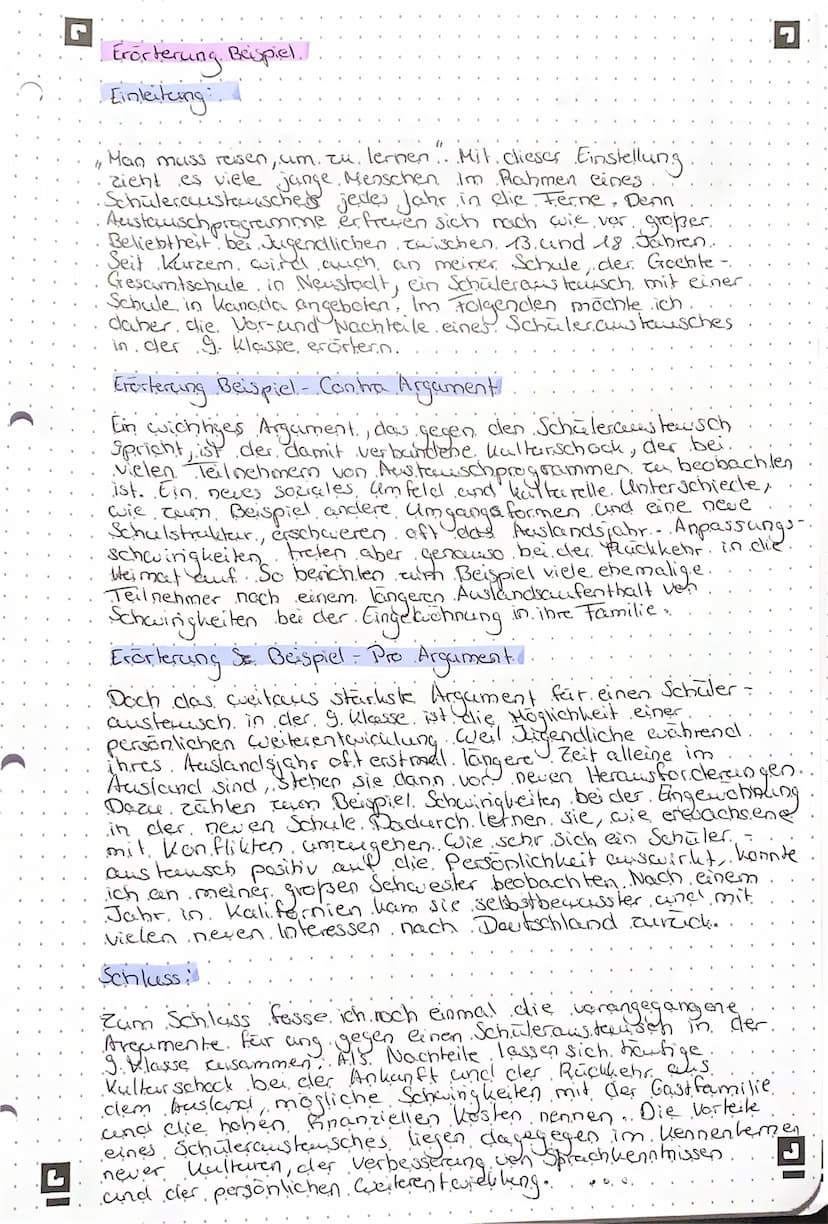 Erörterung Beispiel
Einleitung:
„Man muss reisen, um zu lernen". Mit dieser Einstellung
zieht es viele junge Menschen im Rahmen eines
Schüleraustausches jedes Jahr in die Ferne. Denn
Austauschprogramme erfreuen sich nach wie vor großer
Beliebtheit bei Jugendlichen zwischen 13 und 18 Jahren.
Seit kurzem wird auch an meiner Schule, der Goethe-
Gesamtschule in Neustadt, ein Schüleraustausch mit einer
Schule in Kanada angeboten. Im Folgenden möchte ich
daher die Vor- und Nachteile eines Schüleraustausches
in der 9. Klasse erörtern.
Erörterung Beispiel - Contra Argument
Ein wichtiges Argument, das gegen den Schüleraustausch
spricht, ist der damit verbundene Kulturschock, der bei
vielen Teilnehmern von Austauschprogrammen zu beobachten
ist. Ein neues soziales Umfeld und kulturelle Unterschiede,
wie zum Beispiel andere Umgangsformen und eine neue
Schulstruktur, erschweren oft das Auslandsjahr. Anpassungs-
schwierigkeiten treten aber genauso bei der Rückkehr in die
Heimat auf. So berichten zum Beispiel viele ehemalige
Teilnehmer nach einem längeren Auslandsaufenthalt von
Schwirigkeiten bei der Eingewöhnung in ihre Familie.
Erörterung Beispiel - Pro Argument
Doch das weitaus stärkste Argument für einen Schüler-
austausch in der 9. Klasse ist die Möglichkeit einer
persönlichen Weiterentwicklung. Weil Jugendliche während
ihres Auslandsjahr oft erstmal längere Zeit alleine im
Ausland sind, stehen sie dann vor neuen Herausforderungen.
Dazu zählen zum Beispiel Schwirigkeiten bei der Eingewöhnung
in der neuen Schule. Dadurch lernen sie, wie erwachsene
mit Konflikten umzugehen. Wie sehr sich ein Schüler-
austausch positiv auf die Persönlichkeit auswirkt, konnte
ich an meiner großen Schwester beobachten. Nach einem
Jahr in Kalifornien kam sie selbstbewusster und mit
vielen neuen Interessen nach Deutschland zurück.
Schluss:
Zum Schluss fasse ich noch einmal die vorangegangene
Argumente für ung gegen einen Schüleraustausch in der
9. Klasse zusammen. Als Nachteile lassen sich häufige
Kulturschock bei der Ankunft und der Rückkehr aus
dem Ausland, mögliche Schwirigkeiten mit der Gastfamilie
und die hohen finanziellen Kosten nennen. Die Vorteile
eines Schüleraustausches liegen dagegegen im Kennenlernen
neuer Kulturen, der Verbesserung von Sprachkenntnissen
und der persönlichen Weiterentwicklung. ....